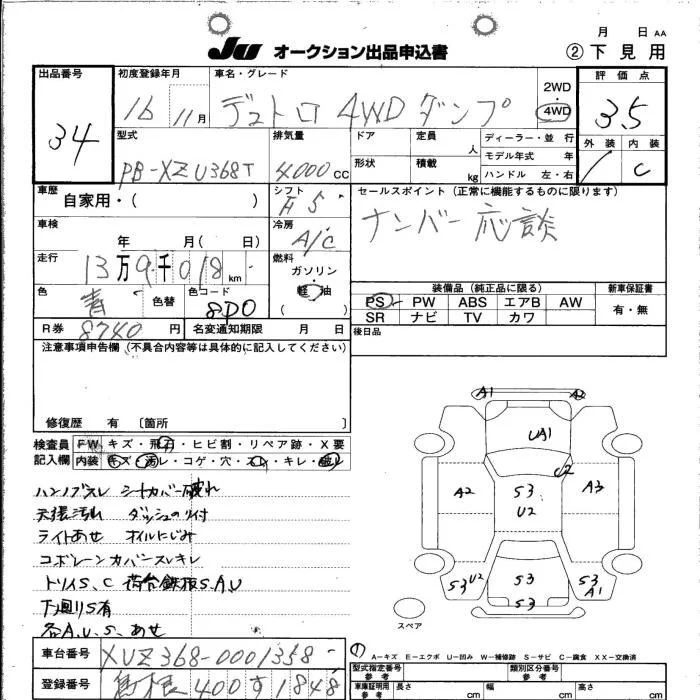 月 日 AA
JU オークション出品申込書 ② 下見用
出品番号 初度登録年月 車名・グレード 2WD ・ 4WD 評価点
34 16 11月 デュトロ 4WD ダンプ 3.5
外装 内装
C
型式 排気量 ドア 定員 人 ディーラー・並行
PB-XZU368T 4000 CC 形状 積載 kg モデル年式 年
ハンドル 左・右
車歴 自家用・( ) シフト F5 セールスポイント (正常に機能するものに限ります)
ナンバー応談
車検 年 月( 日) 冷房 A/C
走行 13万9千018 km 燃料 ガソリン 軽油 ( )
色 青 色替 色コード 8P0
装備品 (純正品に限る) 新車保証書
PS PW ABS エアB AW 有・無
SR ナビ TV カワ
R券 8740 円 名変通知期限 月 日 後日品
注意事項申告欄 (不具合内容等は具体的に記入してください)
修復歴 有 〔箇所 〕
検査員 FW キズ・飛石・ヒビ割・リペア跡・X要
記入欄 内装 キズ・汚レ・コゲ・穴・スレ・キレ・破レ
ハンドルスレ シートカバー破れ
天張汚れ ダッシュのり付
ライトあせ オイルにじみ
コボレーンカバースレキレ
トリイS、C 荷台鉄板S.A.U
下廻りS有
各A.U.S.あせ
A1 A2
UA1
U2
A2 S3 U2 A3
S3 U2 S3 S3 A1
S3
スペア
A-キズ E-エクボ U-凹み W-補修跡 S-サビ C-腐食 XX-交換済
車台番号 XUZ368-0001358
型式指定番号 参考 類別区分番号 参考
登録番号 島根 400 す 1848
車庫証明用 参考 長さ cm 幅 cm 高さ cm